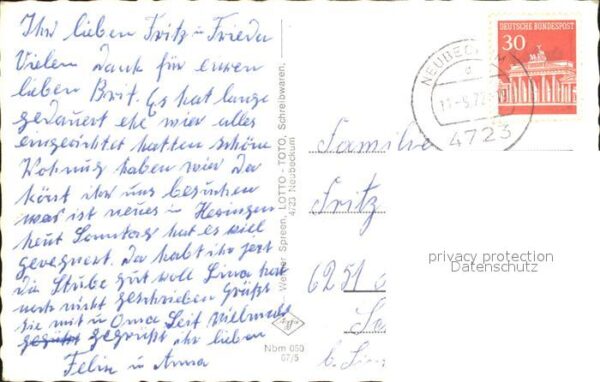 Ihr lieben Fritz u Frieda
Vielen Dank für euren
lieben Brif. Es hat lange
gedauert ehe wier alles
eingerichtet hatten schöne
Wohnug haben wier Da
könt ihr uns besuchen
was ist neues in Heringen
heut Sonntag hat es viel
geregnert. Da habt ihr jezt
die Stube gut voll Lina hat
noch nicht geschrieben Grüßt
Sie mit u Oma Seit vielmals
gegrüßt ihr lieben
Felix u Anna
Werner Spreen, LOTTO - TOTO, Schreibwaren,
4723 Neubeckum
Nbm 050
67/5
DEUTSCHE BUNDESPOST
30
NEUBECKUM
4723
Familie
Fritz
6251
privacy protection
Datenschutz